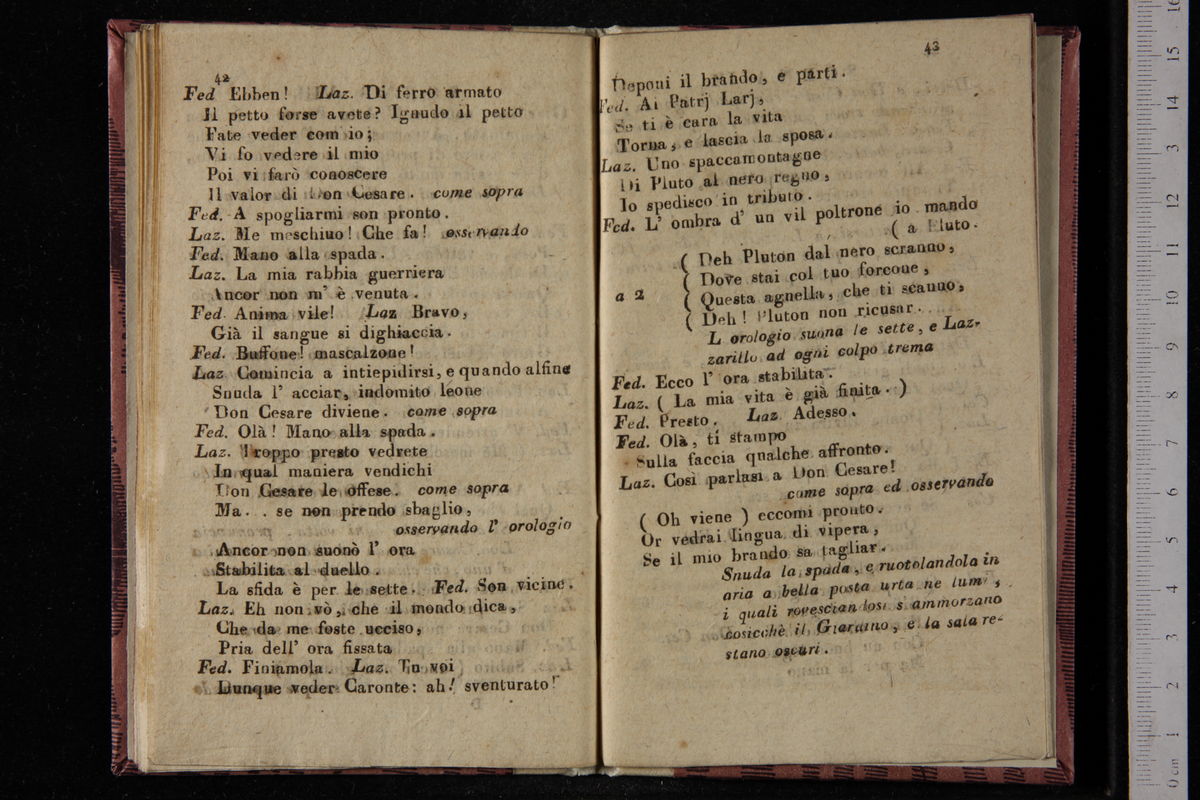 42
Fed Ebben! Laz. Di ferro armato
Il petto forse avete? Ignudo il petto
Fate veder com io;
Vi fo vedere il mio
Poi vi farò conoscere
Il valor di Don Cesare. come sopra
Fed. A spogliarmi son pronto.
Laz. Me meschino! Che fa! osservando
Fed. Mano alla spada.
Laz. La mia rabbia guerriera
Ancor non m' è venuta.
Fed. Anima vile! Laz Bravo,
Già il sangue si dighiaccia.
Fed. Buffone! mascalzone!
Laz Comincia a intiepidirsi, e quando alfine
Snuda l' acciar, indomito leone
Don Cesare diviene. come sopra
Fed. Olà! Mano alla spada.
Laz. Troppo presto vedrete
In qual maniera vendichi
Don Cesare le offese. come sopra
Ma. . se non prendo sbaglio,
osservando l' orologio
Ancor non suonò l' ora
Stabilita al duello.
La sfida è per le sette. Fed. Son vicine.
Laz. Eh non vò, che il mondo dica,
Che da me foste ucciso,
Pria dell' ora fissata
Fed. Finiamola. Laz. Tu voi
Dunque veder Caronte: ah! sventurato!
43
Deponi il brando, e parti.
Fed. Ai Patrj Larj,
Se ti è cara la vita
Torna, e lascia la sposa.
Laz. Uno spaccamontagne
Di Pluto al nero regno,
Io spedisco in tributo.
Fed. L' ombra d' un vil poltrone io mando
( a Pluto.
( Deh Pluton dal nero scranno,
( Dove stai col tuo forcone,
a 2 ( Questa agnella, che ti scanno,
( Deh! Pluton non ricusar.
L orologio suona le sette, e Laz-
zarillo ad ogni colpo trema
Fed. Ecco l' ora stabilita.
Laz. ( La mia vita è già finita. )
Fed. Presto. Laz. Adesso.
Fed. Olà, ti stampo
Sulla faccia qualche affronto.
Laz. Così parlasi a Don Cesare!
come sopra ed osservando
( Oh viene ) eccomi pronto.
Or vedrai lingua di vipera,
Se il mio brando sa tagliar.
Snuda la spada, e ruotolandola in
aria a bella posta urta ne lumi,
i quali rovesciandosi s ammorzano
cosicchè il Giardino, e la sala re-
stano oscuri.